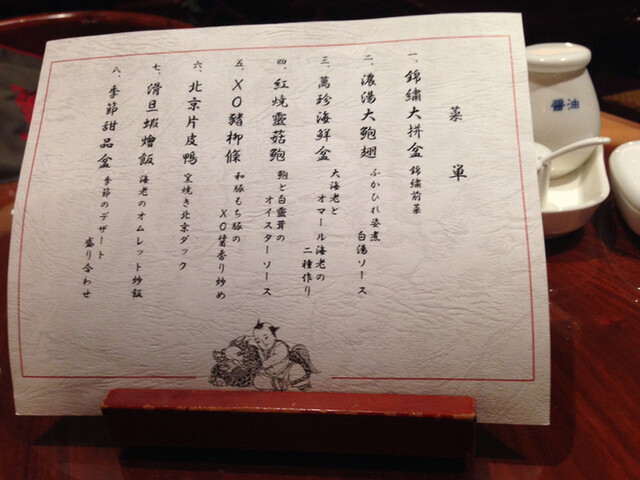 菜単
一、錦繍大拼盆 錦繍前菜
二、濃湯大鮑翅 ふかひれ姿煮
白湯ソース
三、萬珍海鮮盆 大海老と
オマール海老の
二種作り
四、紅焼靈菇鮑 鮑と白靈茸の
オイスターソース
五、XO豬柳條 和豚もち豚の
XO醤香り炒め
六、北京片皮鴨 窯焼き北京ダック
七、滑旦蝦燴飯 海老のオムレット炒飯
八、季節甜品盆 季節のデザート
盛り合わせ
醤油